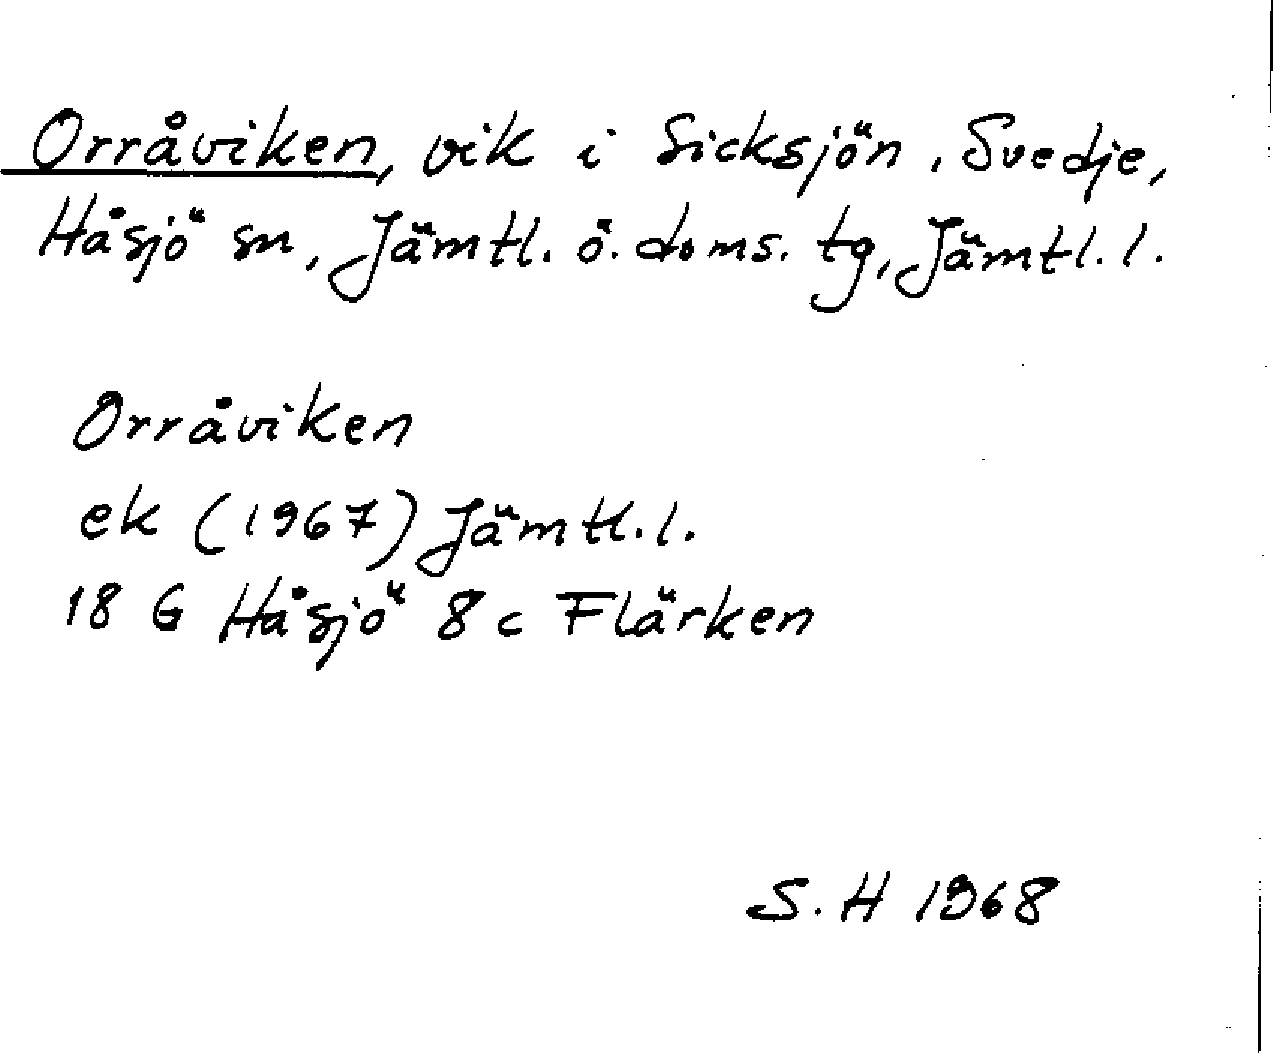 Orråviken, vik i Sicksjön, Svedje,
Håsjö sn, Jämtl. ö. doms. tg, Jämtl. l.
Orråviken
ek (1967) Jämtl. l.
18 G Håsjö 8 c Flärken
S. H 1968